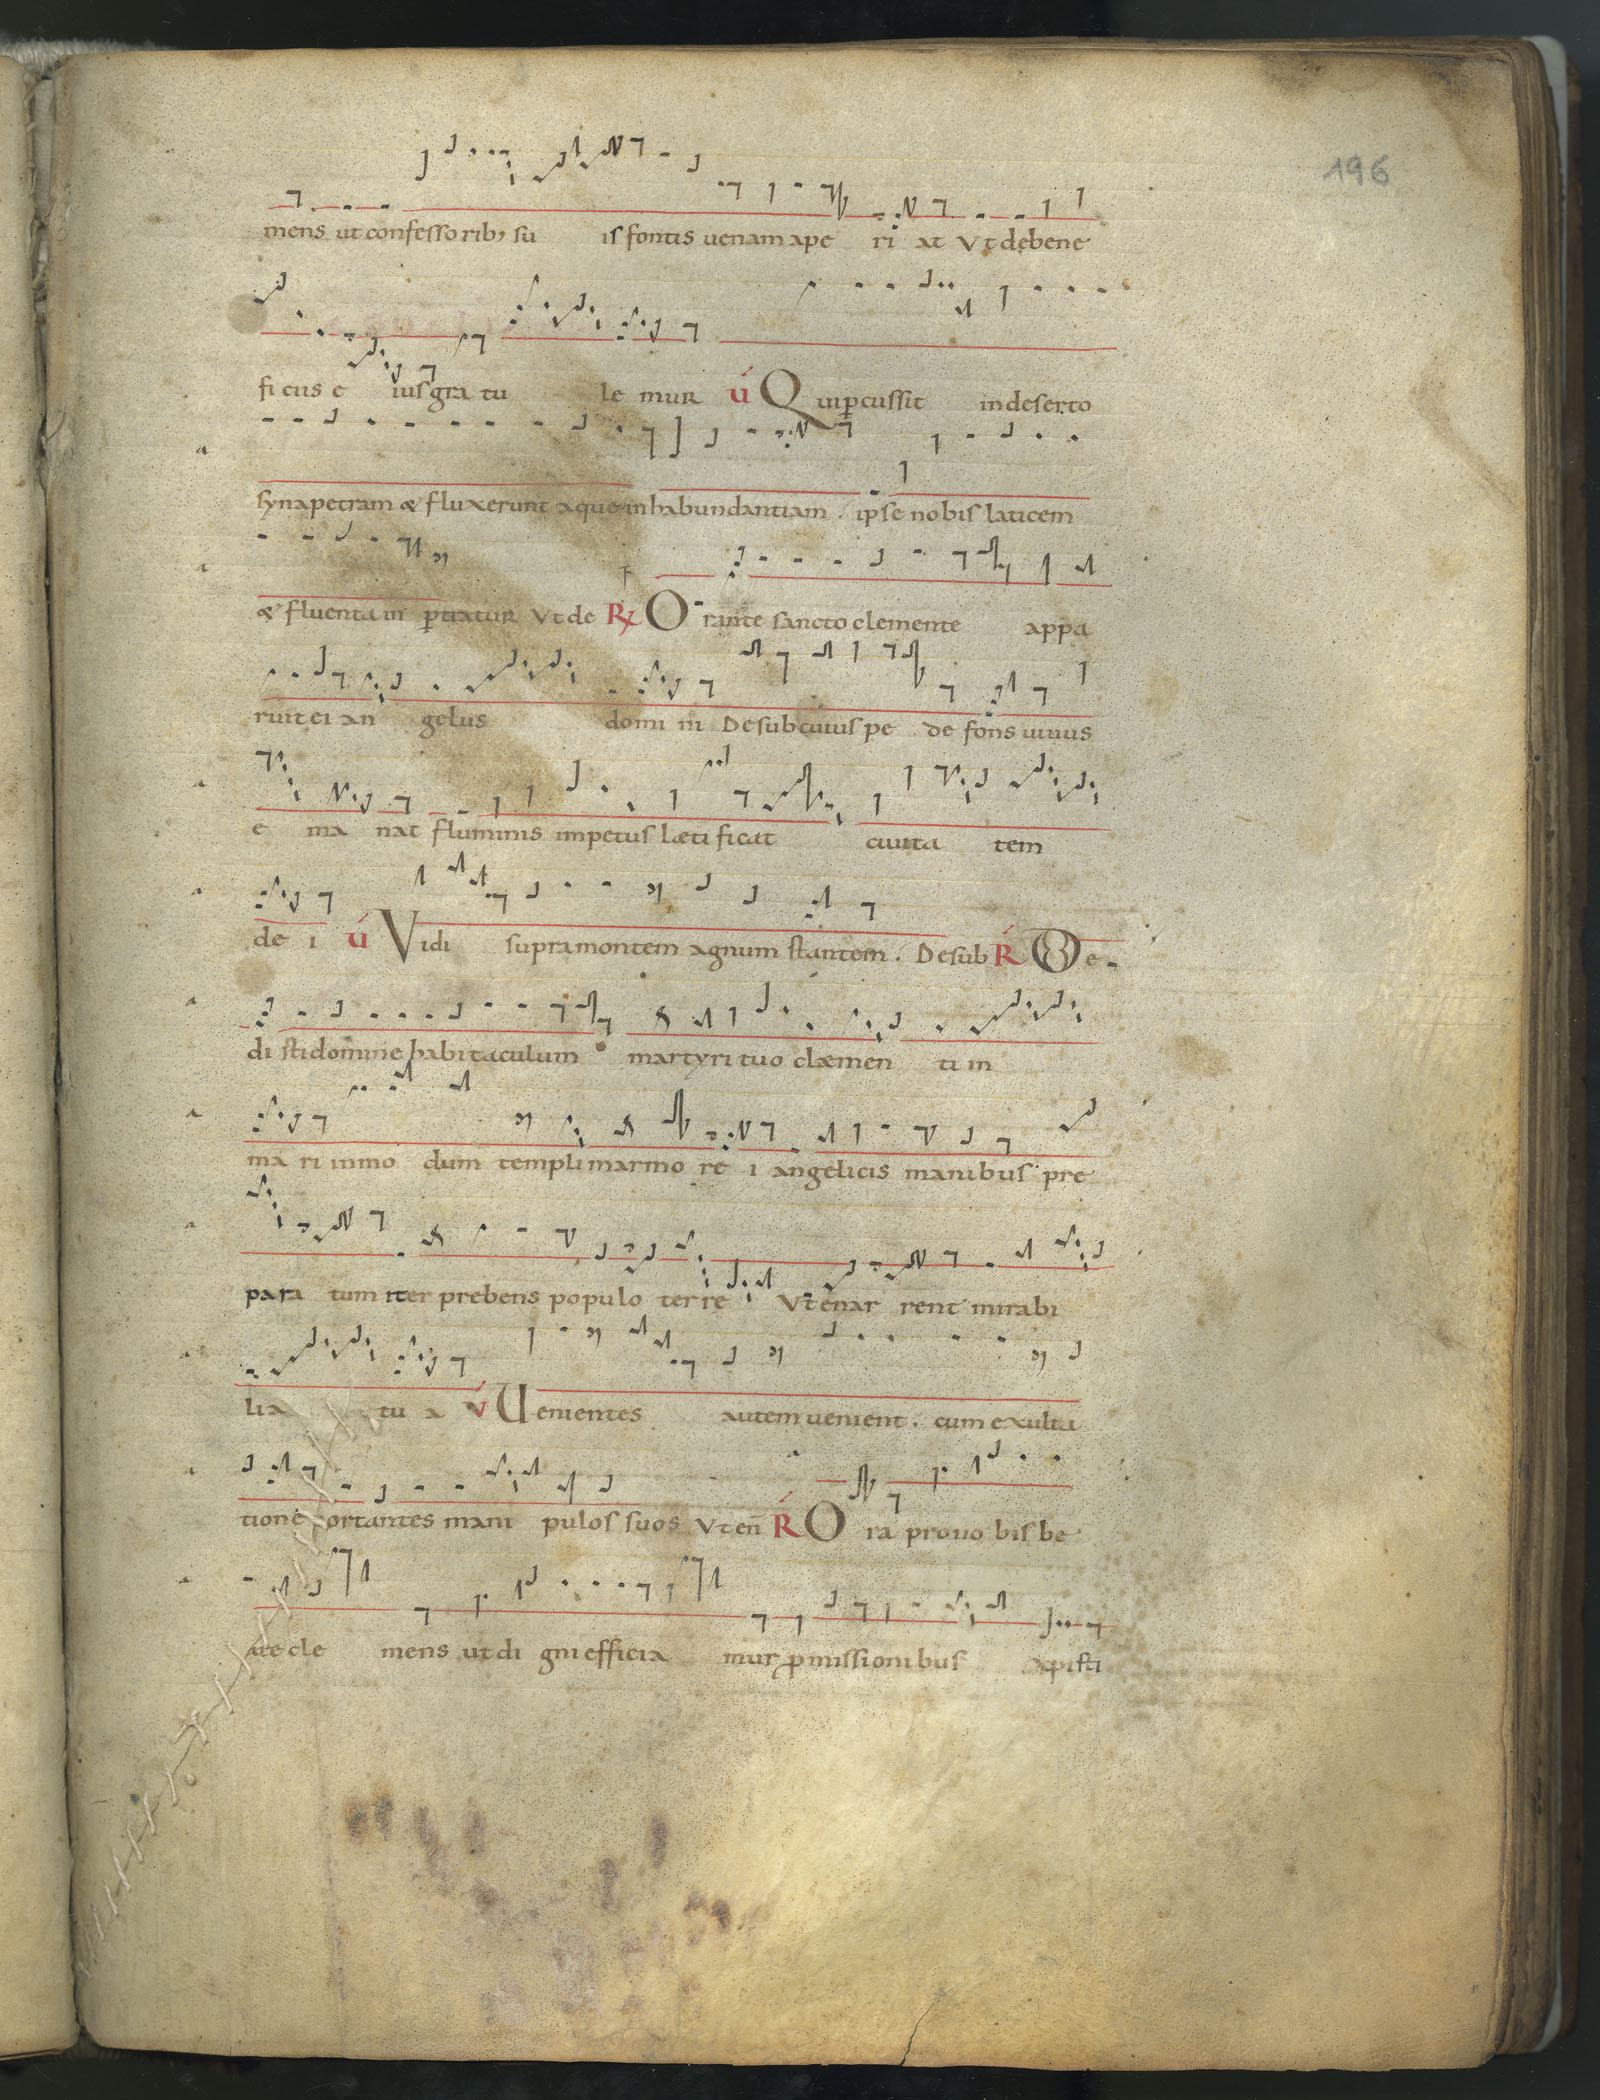 196
mens ut confessoribꝰ su is fontis uenam ape ri at Vt debene
ficus e ius gra tu le mur ú Qui ꝑcussit in deserto
synapetram & fluxerunt aque in habundantiam . ipse nobis laticem
& fluenta in ꝑtiatur Vt de R O rante sancto clemente appa
ruit ei an gelus domi ni De sub cuius pe de fons uiuus
e ma nat fluminis impetus lætificat ciuita tem
de i ú Vidi supra montem agnum stantem . De sub R O e
di sti domine habitaculum martyri tuo clæmen ti in
ma ri inmo dum templi marmo re i angelicis manibus pre
para tum iter prebens populo terre Vt enar rent mirabi
lia tu a v Uenientes autem uenient . cum exulta
tione portantes mani pulos suos Vt en̄ R O ra pro uo bis be
ate cle mens ut di gni efficia mur ꝓmissionibus xpisti